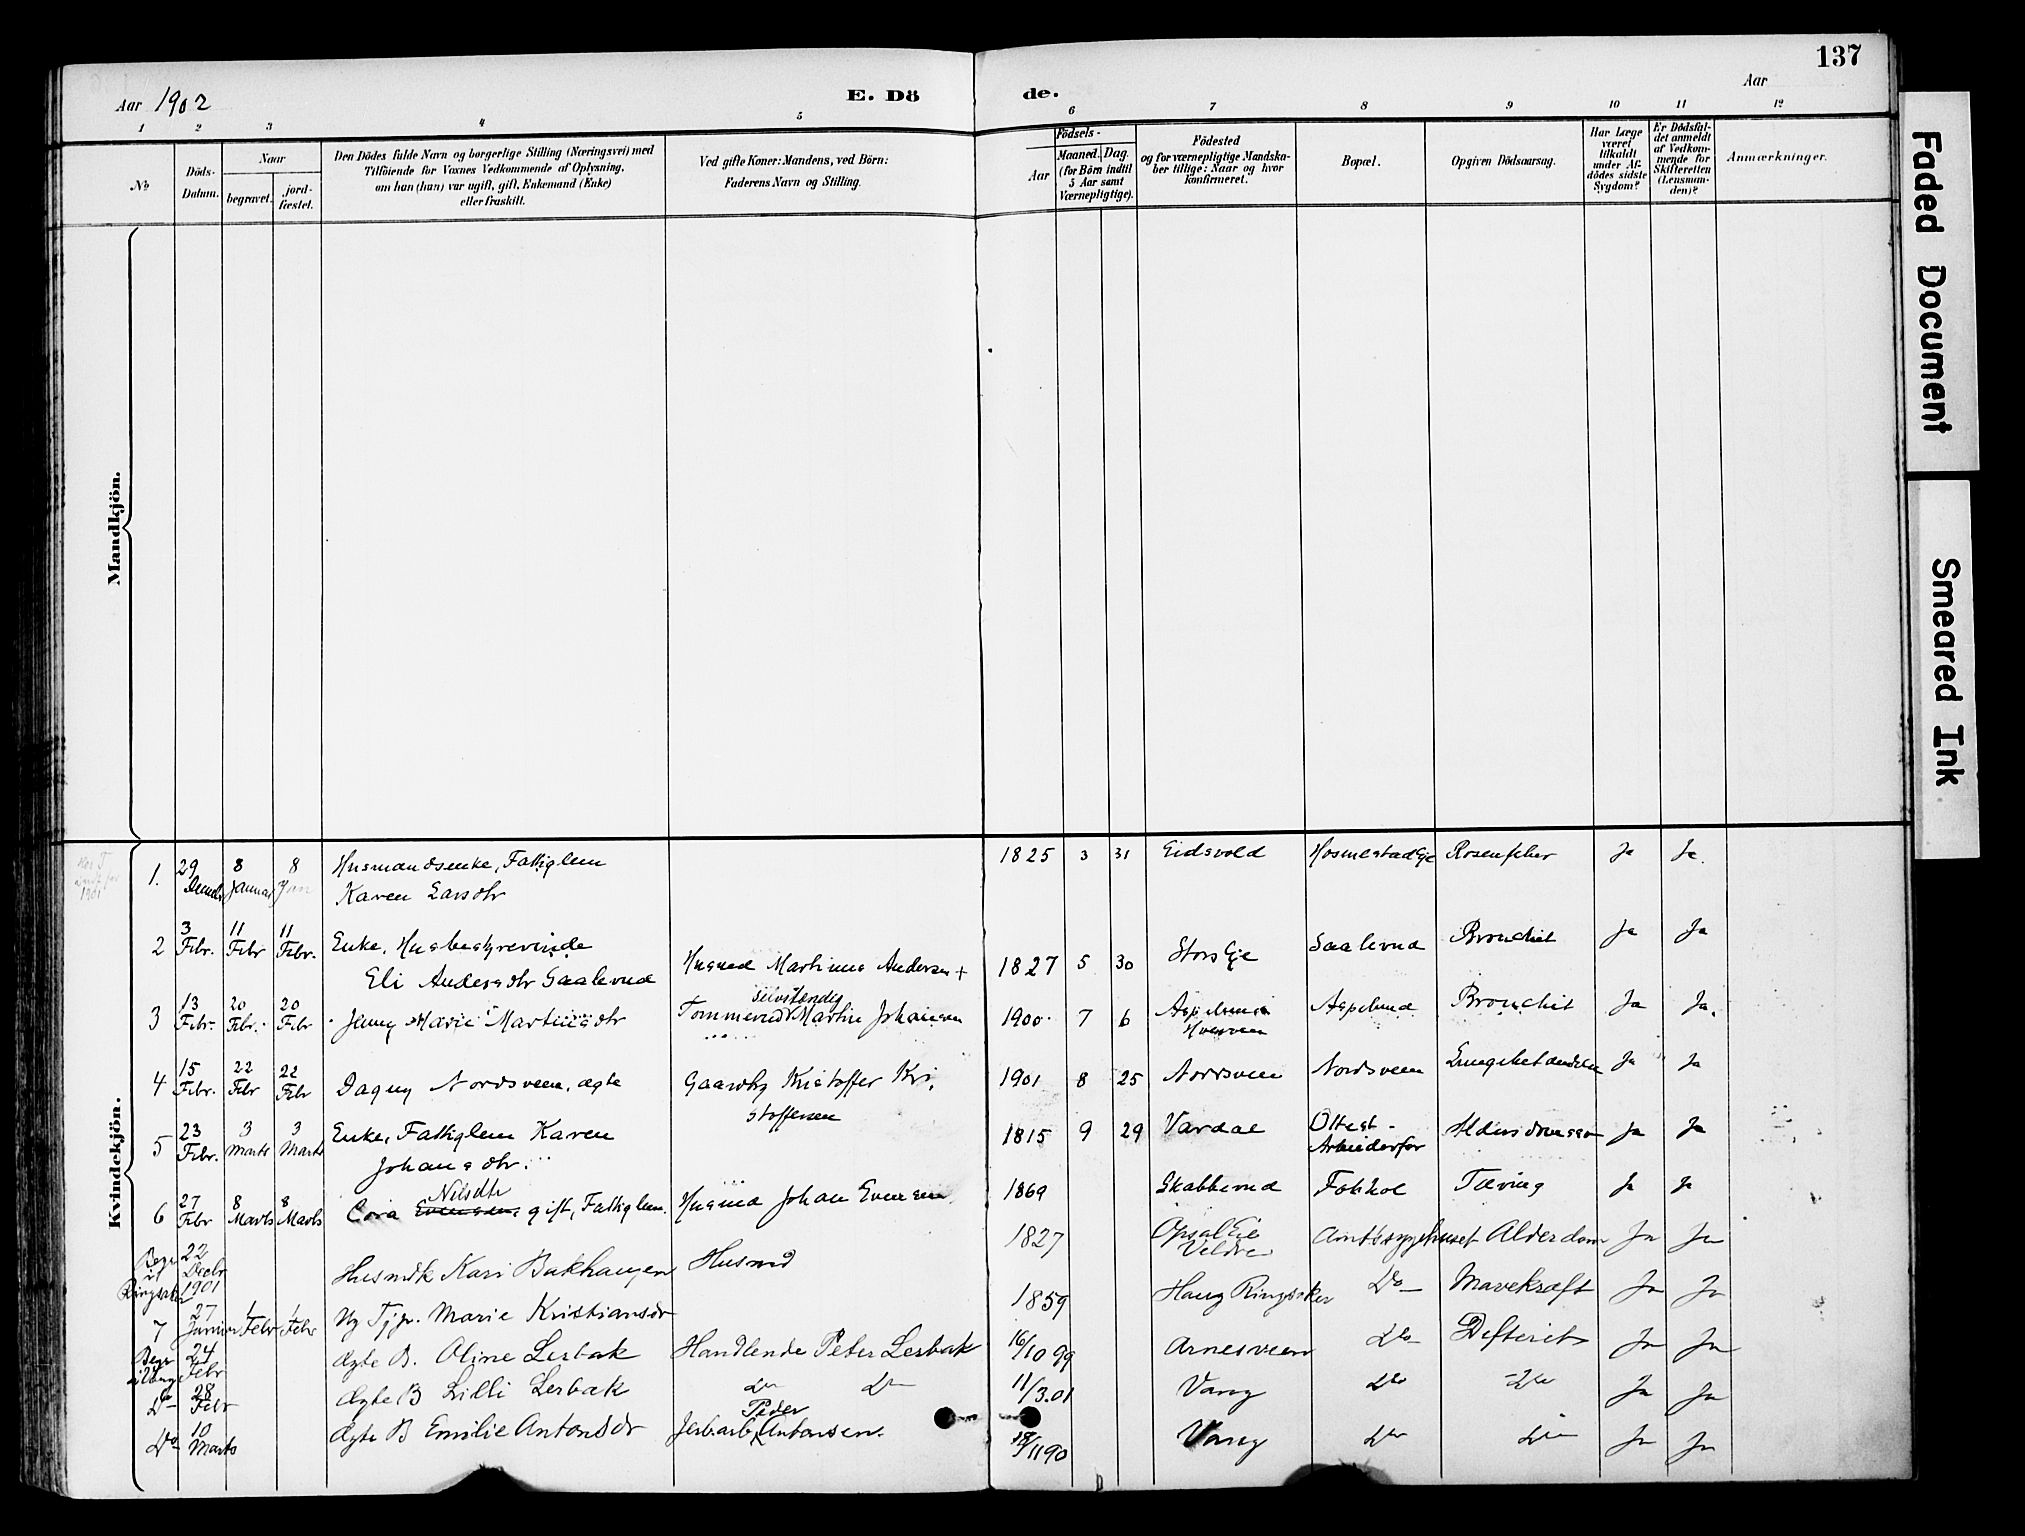 137
Aar 1902
E. Dö
de.
Aar
1 2 3 4 5 6 7 8 9 10 11 12
No
Döds-Datum.
Naar
begravet.
jord-fæstet.
Den Dödes fulde Navn og borgerlige Stilling (Næringsvei) med
Tilföiende for Voxnes Vedkommende af Oplysning,
om han (hun) var ugift, gift, Enkemand (Enke)
eller fraskilt.
Ved gifte Koner: Mandens, ved Börn:
Faderens Navn og Stilling.
Födsels-
Aar
Maaned. Dag.
(for Börn indtil
5 Aar samt
Værnepligtige).
Födested
og for værnepligtige Mandska-
ber tillige: Naar og hvor
konfirmeret.
Bopæl.
Opgiven Dödsaarsag.
Har Læge
været
tilkaldt
under Af-
dödes sidste
Sygdom?
Er Dödsfal-
det anmeldt
af Vedkom-
mende for
Skifteretten
(Lensman-
den)?
Anmærkninger.
Mandkjön.
Kvindekjön.
1. 29 8 Januar 8 Jan Husmandsenke, Fattiglem
Karen Larsdtr 1825 3 31 Eidsvold Ja Ja.
2 3 Febr. 11 Febr 11 Febr. Enke, Husbestyrerinde
Eli Andersdtr Saalerud Husmd Martinus Andersen + 1827 5 30 Stors Eje Saalerud Bronchit Ja Ja
3 13 Febr. 20 Febr. 20 Febr Jenny Marie Martinsdtr selvstændig
Tømmermd Martin Johansen 1900 7 6 Aspelund Bronchit Ja Ja.
4 15 Febr. 22 Febr 22 Febr Dagny Nordsveen, ægte Gaardbr Kristoffer Kri-
stoffersen 1901 8 25 Nordsveen Nordsveen Lungebetændelse Ja Ja
5 23 Febr. 3 Marts 3 Marts Enke, Fattiglem Karen
Johansdtr. 1815 9 29 Vardal Ottest-
Arbeiderfor Ja Ja
6 27 Febr 8 Marts 8 Marts Nilsdtr
gift, Fattiglem. Husmd Johan Evensen 1869 Skabberud Fokhol Tæring Ja Ja
Begr
i
Ringsaker 22 Decbr 1901 Husmdk Kari Bakhaugen Husmd 1827 Opsal Eie
Veldre Amtssygehuset Alderdom Ja Ja
7 27 Januar 1 Febr 1 Febr Ug Tj.p. Marie Kristiansdr 1859 Haug Ringsaker Do Mavekræft Ja Ja
Begr 24 Febr Ægte B. Oline Lerbak Handlende Peter Lerbak 16/10 99 Arnesveen Do Defterit Ja Ja
Do 28 Febr Ægte B Lilli Lerbak Do Do 11/3.01 Vang Do Do Ja Ja
Do 10 Marts Ægte B Emilie Antonsdr Peder
Antonsen. Vang Do Do Ja Ja
Faded Document
Smeared Ink